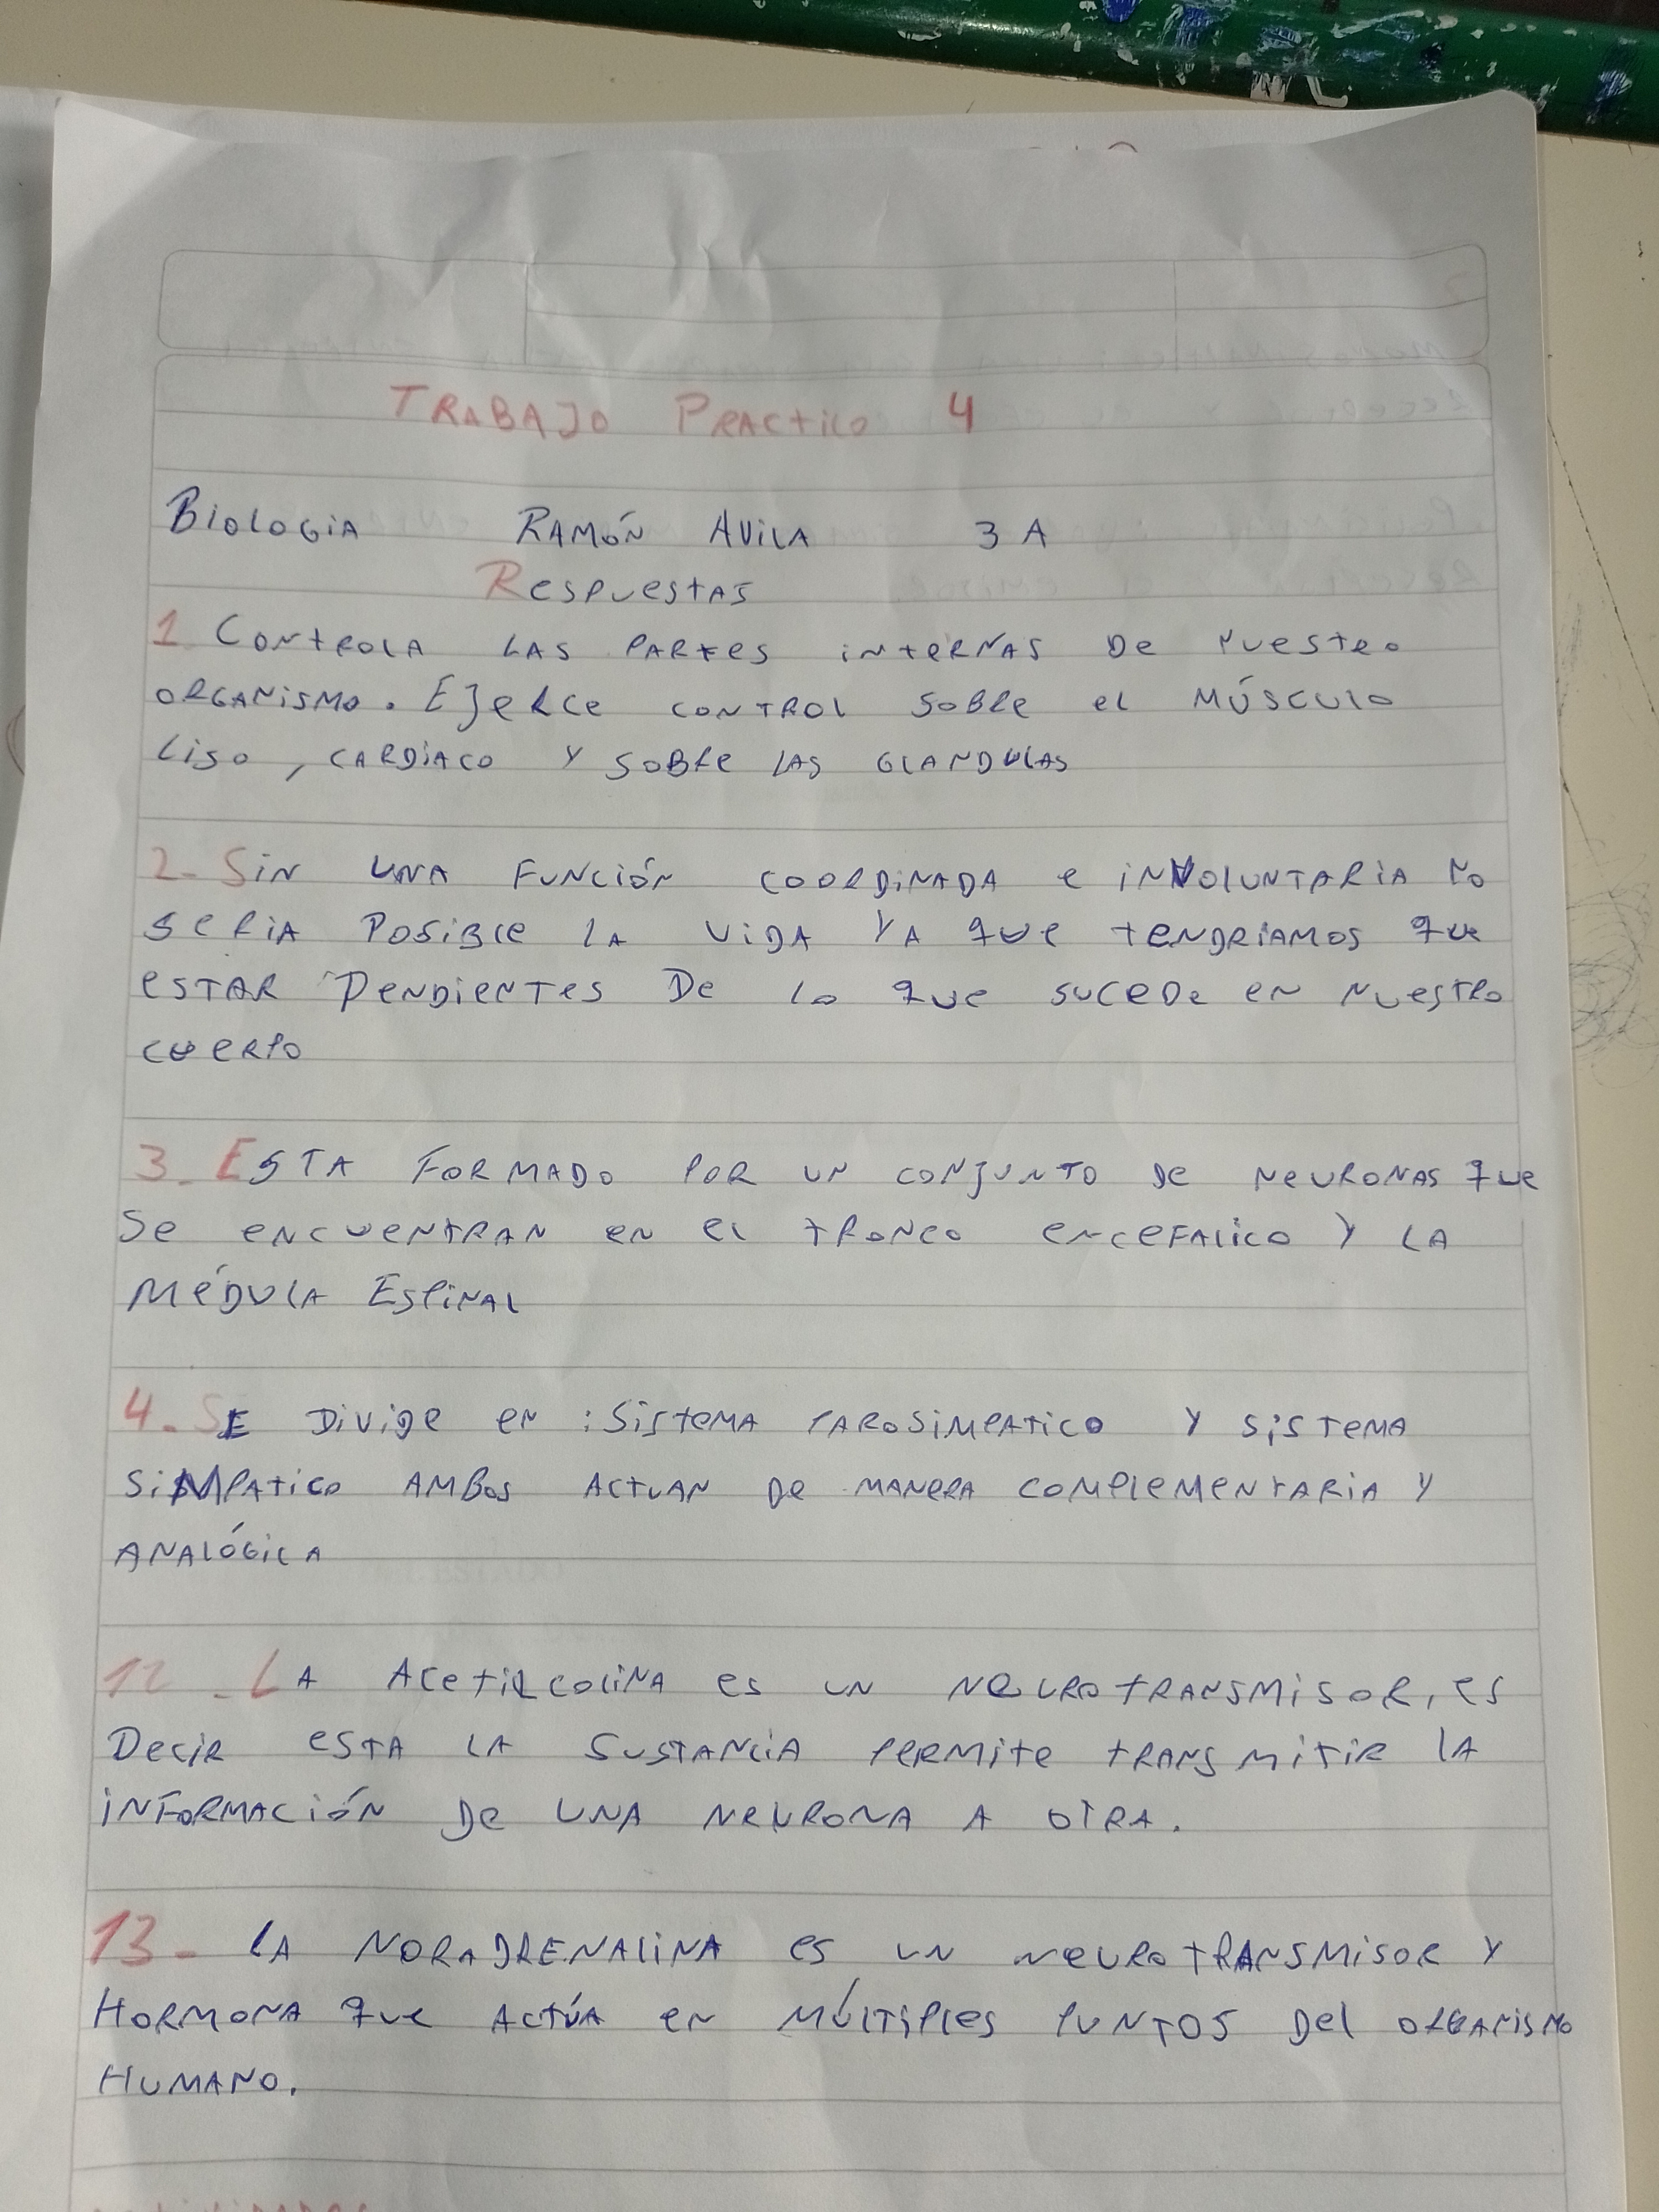 TRABAJO PRACTICO 4
BIOLOGIA RAMÓN AVILA 3 A
RESPUESTAS
1 CONTROLA LAS PARTES INTERNAS DE NUESTRO
ORGANISMO. EJERCE CONTROL SOBRE EL MÚSCULO
LISO, CARDIACO Y SOBRE LAS GLANDULAS
2- SIN UNA FUNCIÓN COORDINADA E INVOLUNTARIA NO
SERIA POSIBLE LA VIDA YA QUE TENDRIAMOS QUE
ESTAR PENDIENTES DE LO QUE SUCEDE EN NUESTRO
CUERPO
3- ESTA FORMADO POR UN CONJUNTO DE NEURONAS QUE
SE ENCUENTRAN EN EL TRONCO ENCEFALICO Y LA
MÉDULA ESPINAL
4- SE DIVIDE EN: SISTEMA PAROSIMPATICO Y SISTEMA
SIMPATICO AMBOS ACTUAN DE MANERA COMPLEMENTARIA Y
ANALÓGICA
12- LA ACETILCOLINA ES UN NEUROTRANSMISOR, ES
DECIR ESTA LA SUSTANCIA PERMITE TRANSMITIR LA
INFORMACIÓN DE UNA NEURONA A OTRA.
13- LA NORADRENALINA ES UN NEUROTRANSMISOR Y
HORMONA QUE ACTÚA EN MÚLTIPLES PUNTOS DEL ORGANISMO
HUMANO.